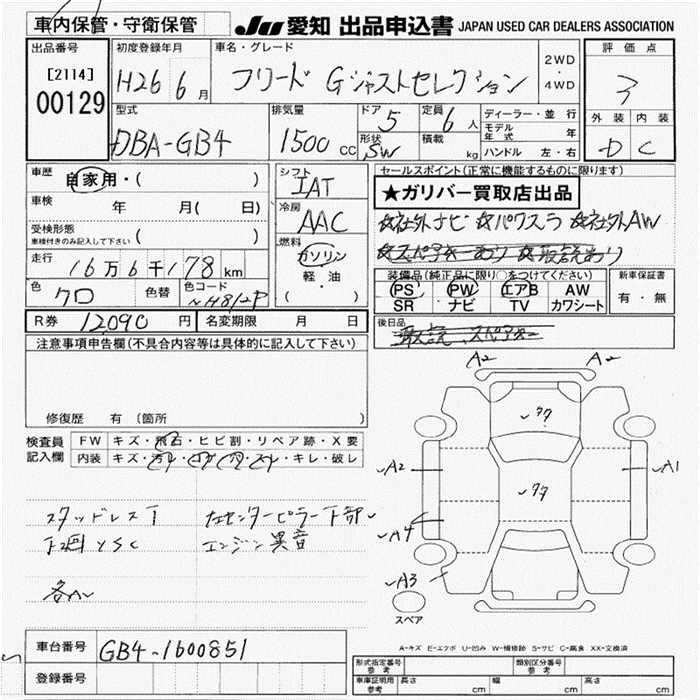 車内保管・守衛保管
JU 愛知 出品申込書 JAPAN USED CAR DEALERS ASSOCIATION
出品番号
[2114]
00129
初度登録年月
H26 6月
車名・グレード
フリード Gジャストセレクション
2WD
・
4WD
評価点
3
外装 内装
D C
型式
DBA-GB4
排気量
1500 CC
ドア
5
形状
SW
定員
6人
積載
kg
ディーラー・並行
モデル年式 年
ハンドル 左・右
車歴
自家用・( )
車検
年 月(日)
受検形態
車検付きのみ記入して下さい ( )
走行
16万6千178km
色
クロ
色替
色コード
NH812P
シフト
IAT
冷房
AAC
燃料
ガソリン
軽・油
( ・ )
セールスポイント(正常に機能するものに限ります)
★ガリバー買取店出品
☆社外ナビ ☆パワスラ ☆社外AW
☆スペアキーあり ☆取説あり
装備品(純正品に限り○をつけてください)
PS PW エアB AW
SR ナビ TV カワシート
新車保証書
有・無
後日品
取説、スペアキー
R券 12,090円
名変期限 月 日
注意事項申告欄(不具合内容等は具体的に記入して下さい)
修復歴 有 〔箇所 〕
検査員
記入欄
FW キズ・飛石・ヒビ割・リペア跡・X要
内装 キズ・汚レ・コゲ・穴・スレ・キレ・破レ
スタッドレスT
左センターピラー下部
下廻りSC
エンジン異音
各
A2 A2
77
A2
A1
77
A4
A3
スペア
A-キズ E-エクボ U-凹み W-補修跡 S-サビ C-腐食 XX-交換済
車台番号
GB4-1600851
登録番号
形式指定番号
参考
類別区分番号
参考
車庫証明用
参考
長さ cm
幅 cm
高さ cm